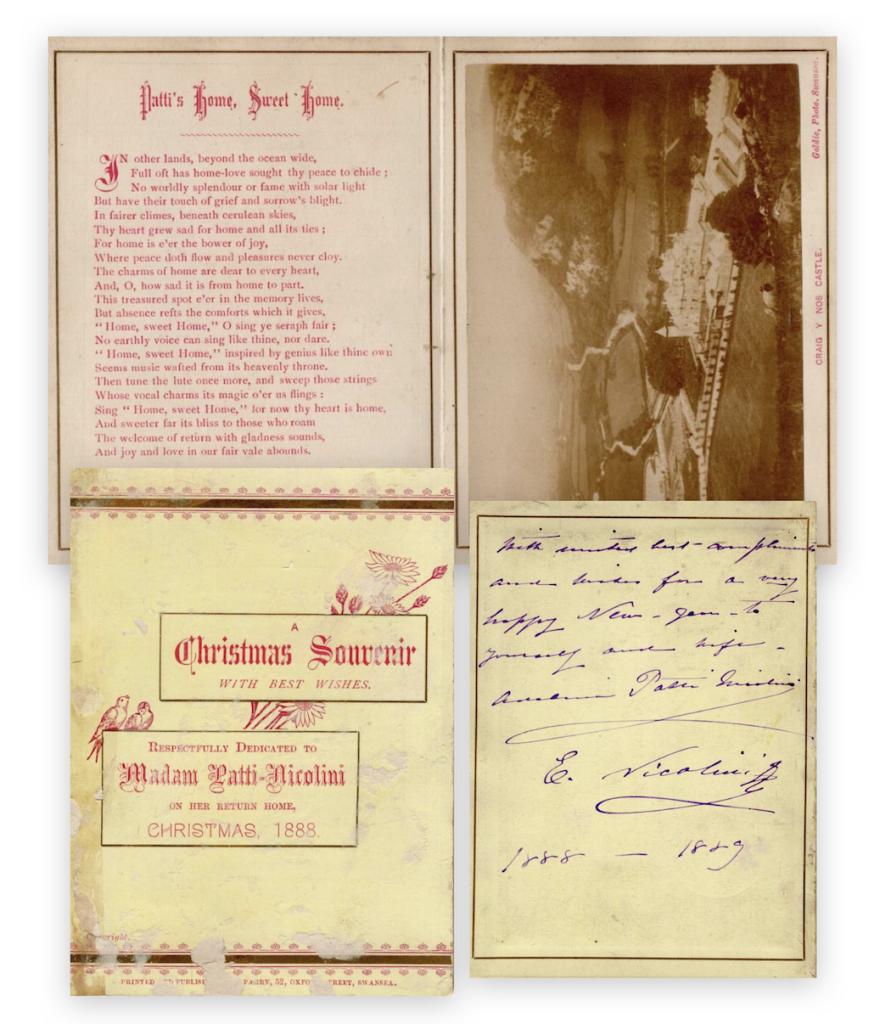 Patti's Home, Sweet Home.
IN other lands, beyond the ocean wide,
Full oft has home-love sought thy peace to chide ;
No worldly splendour or fame with solar light
But have their touch of grief and sorrow's blight.
In fairer climes, beneath cerulean skies,
Thy heart grew sad for home and all its ties ;
For home is e'er the bower of joy,
Where peace doth flow and pleasures never cloy.
The charms of home are dear to every heart,
And, O, how sad it is from home to part.
This treasured spot e'er in the memory lives,
But absence refts the comforts which it gives.
" Home, sweet Home," O sing ye seraph fair ;
No earthly voice can sing like thine, nor dare.
" Home, sweet Home," inspired by genius like thine own
Seems music wafted from its heavenly throne.
Then tune the lute once more, and sweep those strings
Whose vocal charms its magic o'er us flings :
Sing " Home, sweet Home," for now thy heart is home,
And sweeter far its bliss to those who roam
The welcome of return with gladness sounds,
And joy and love in our fair vale abounds.
Goldie, Photo. Swansea.
CRAIG Y NOS CASTLE.
A
Christmas Souvenir
WITH BEST WISHES.
RESPECTFULLY DEDICATED TO
Madam Patti-Nicolini
ON HER RETURN HOME,
CHRISTMAS, 1888.
PRINTED PUBLIS 52, OXFO TREET, SWANSEA.
With united best compliments
and wishes for a very
happy New-year to
yourself and wife -
Adelina Patti Nicolini
E. Nicolini
1888 — 1889